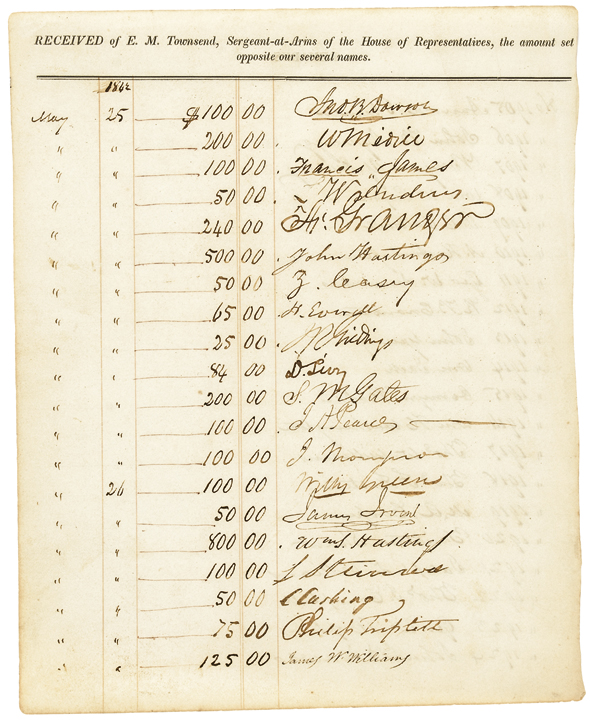 RECEIVED of E. M. Townsend, Sergeant-at-Arms of the House of Representatives, the amount set
opposite our several names.
1842
May 25 $100 00 Jno. B. Dawson
" " 200 00 W Medill
" " 100 00 Francis James
" " 50 00
" " 240 00 Fr. Granger
" " 500 00 John Hastings
" " 50 00 Z. Casey
" " 65 00 H. Everett
" " 25 00 Giddings
" " 84 00 D. Levy
" " 200 00 S. M Gates
" " 100 00 J A Pearce
" " 100 00 J. Thompson
" 26 100 00 Willis Green
" " 50 00 James Irvin
" " 800 00 Wm S. Hastings
" " 100 00
" " 50 00 C Cushing
" " 75 00 Philip Triplett
" " 125 00 James W Williams